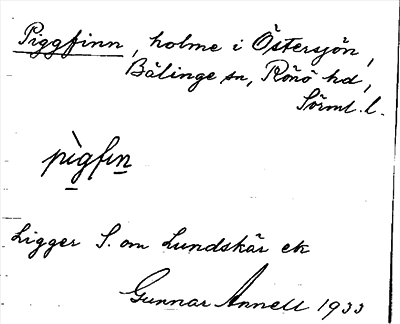 Piggfinn, holme i Östersjön,
Bälinge sn, Rönö hd,
Sörml. l.
pìgfın
Ligger S. om Lundskär ek
Gunnar Annell 1933